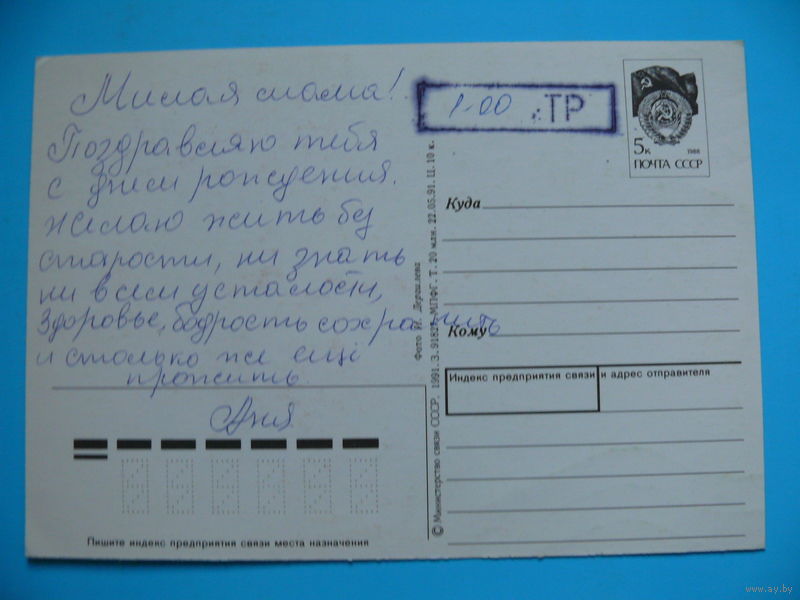 Милая мама!
Поздравляю тебя
с днем рождения.
Желаю жить без
старости, ни знать
ни в чем усталости,
Здоровье, бодрость сохранить
и столько же еще
прожить.
Аня
1-00 ТР
5к 1988
ПОЧТА СССР
Куда
Кому
Индекс предприятия связи и адрес отправителя
Пишите индекс предприятия связи места назначения
Фото И. Дергилева
© Министерство связи СССР, 1991. З. 91821. МПФГ. Т. 20 млн. 22.05.91. Ц. 10 к.
www.ay.by